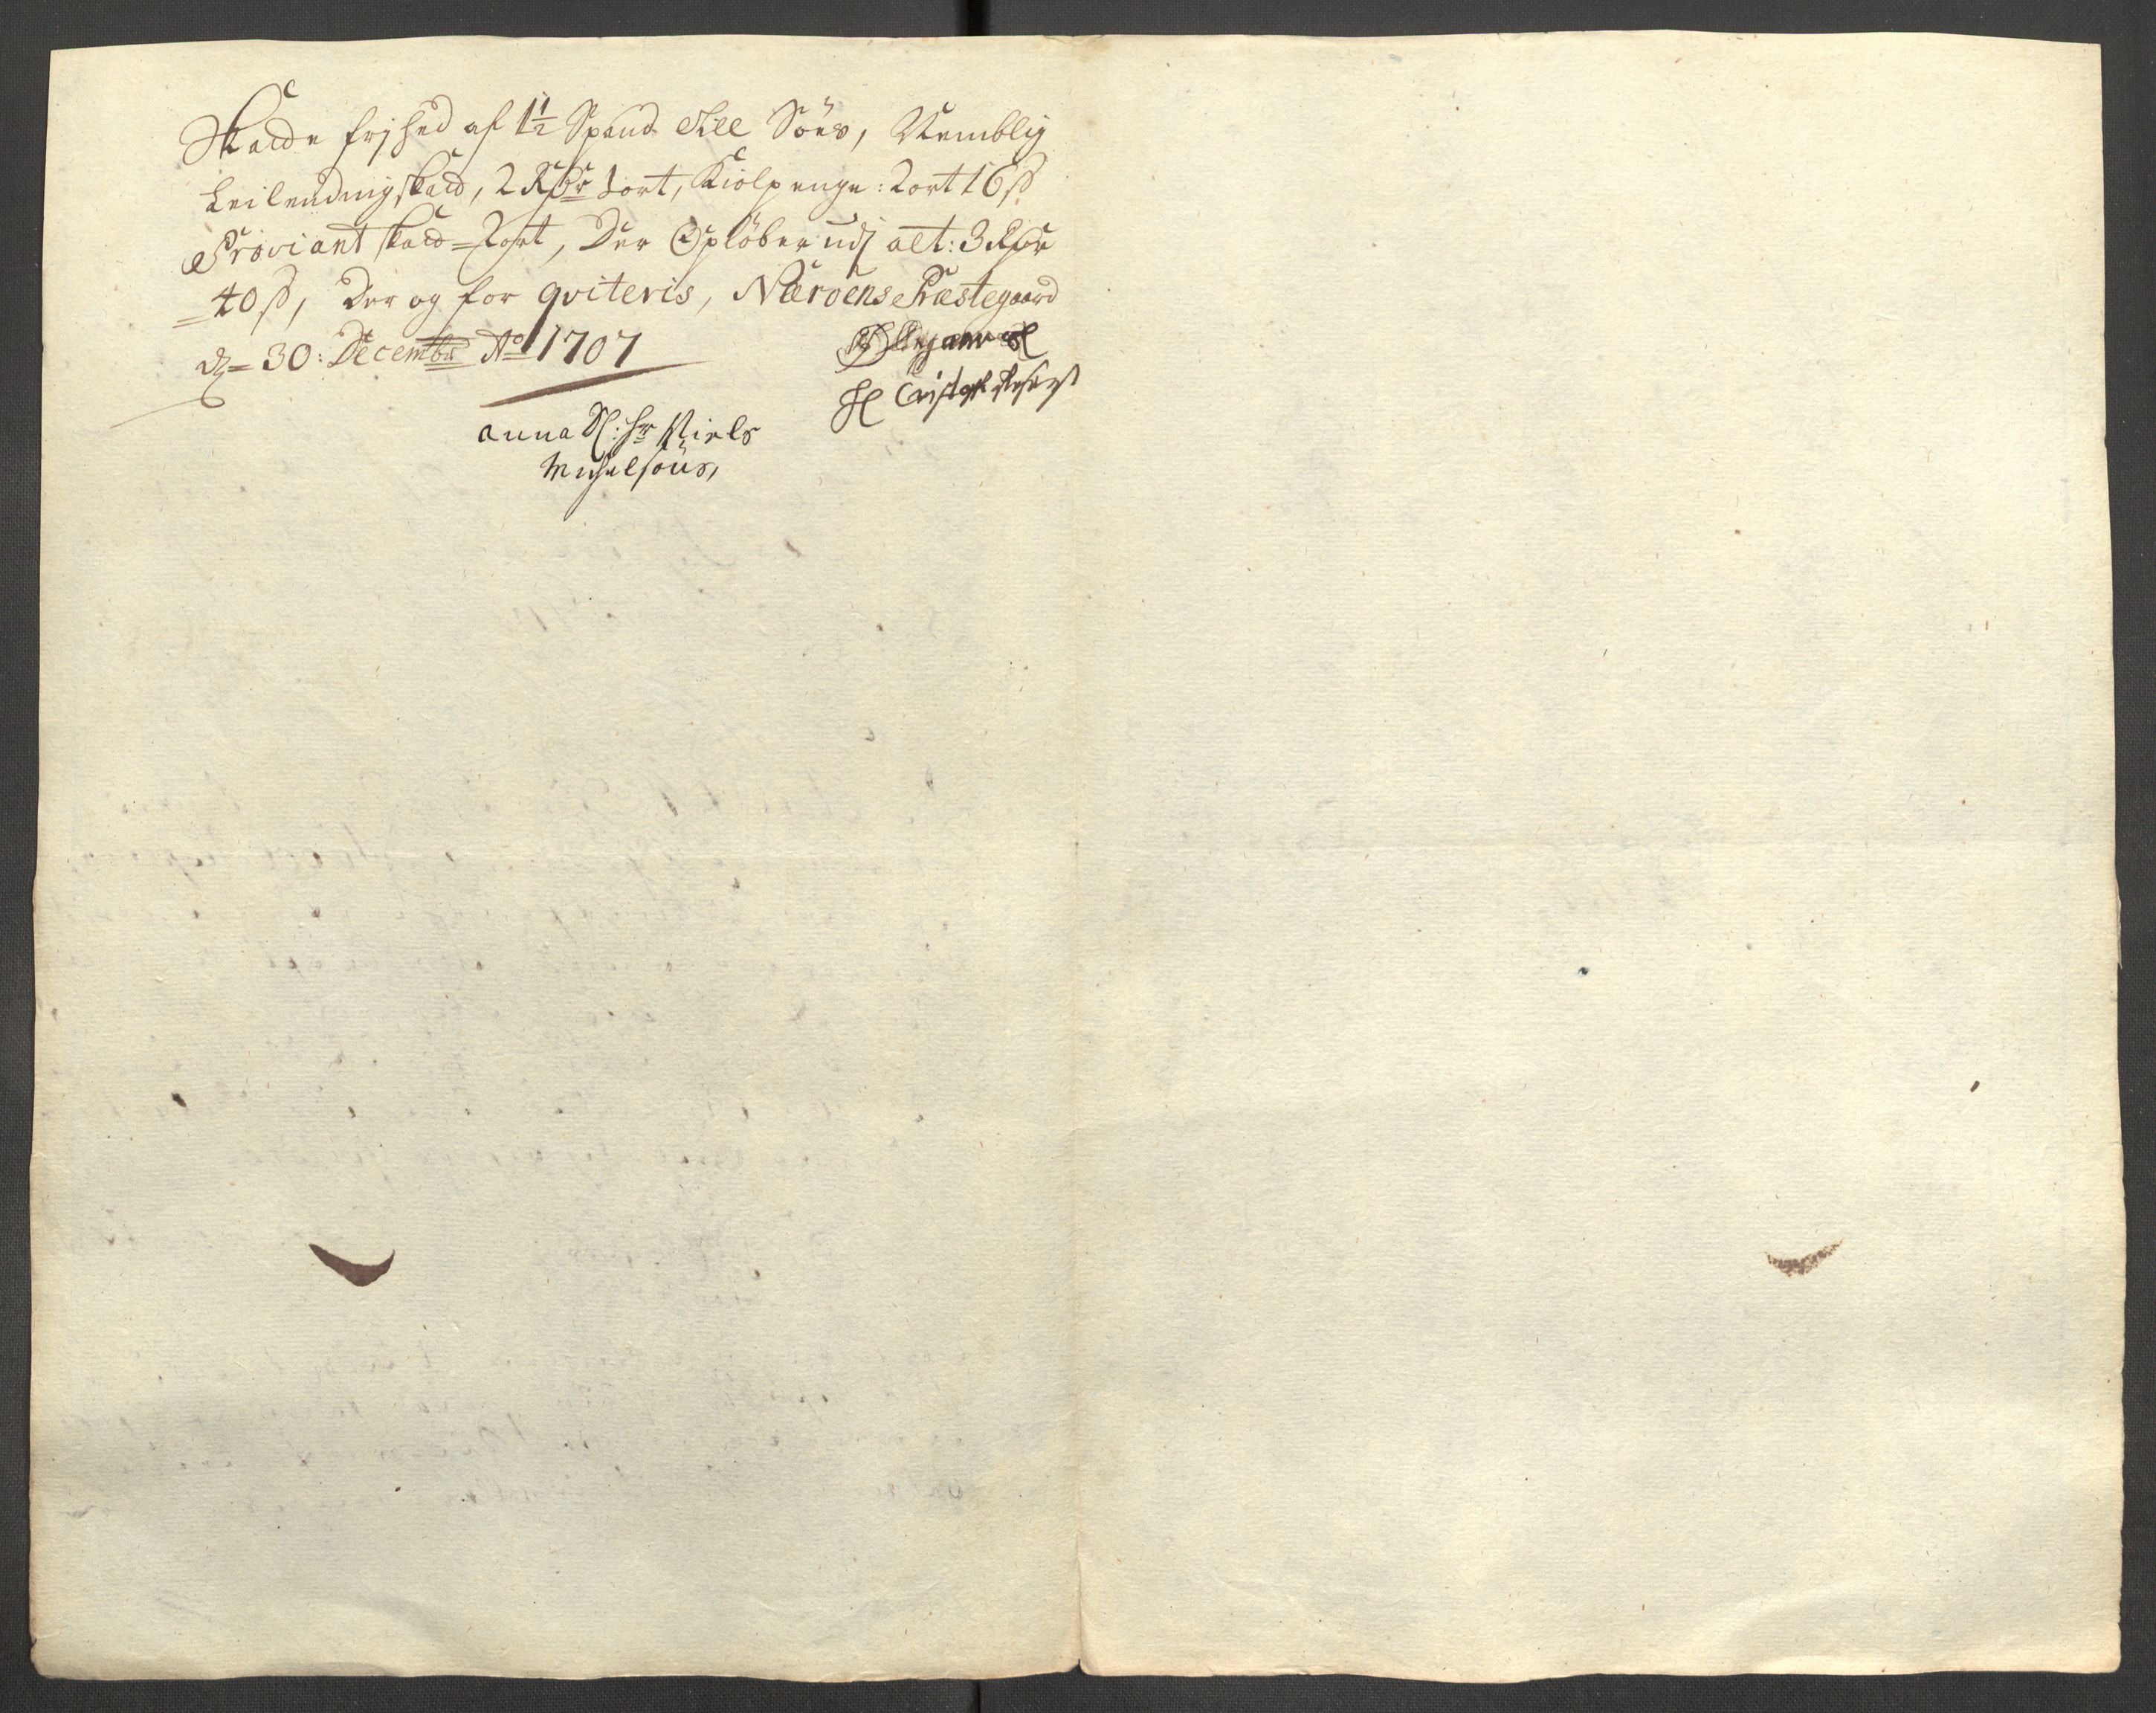 Skade frjhed af 1 1/2 Spand Söes, Nemblig
Leilendingskad, 2 Rdr 1 ort, Kiolpenge: 2 ort 16 ß
Proviant skad = 2 ort, Der Opløber udj alt: 3 Rdr
= 40 ß, Der og for qviteris, Nærøens Præstegaard
d = 30: Decembr Ao 1707
anna Sl: Hr Niels
Michelsöns,